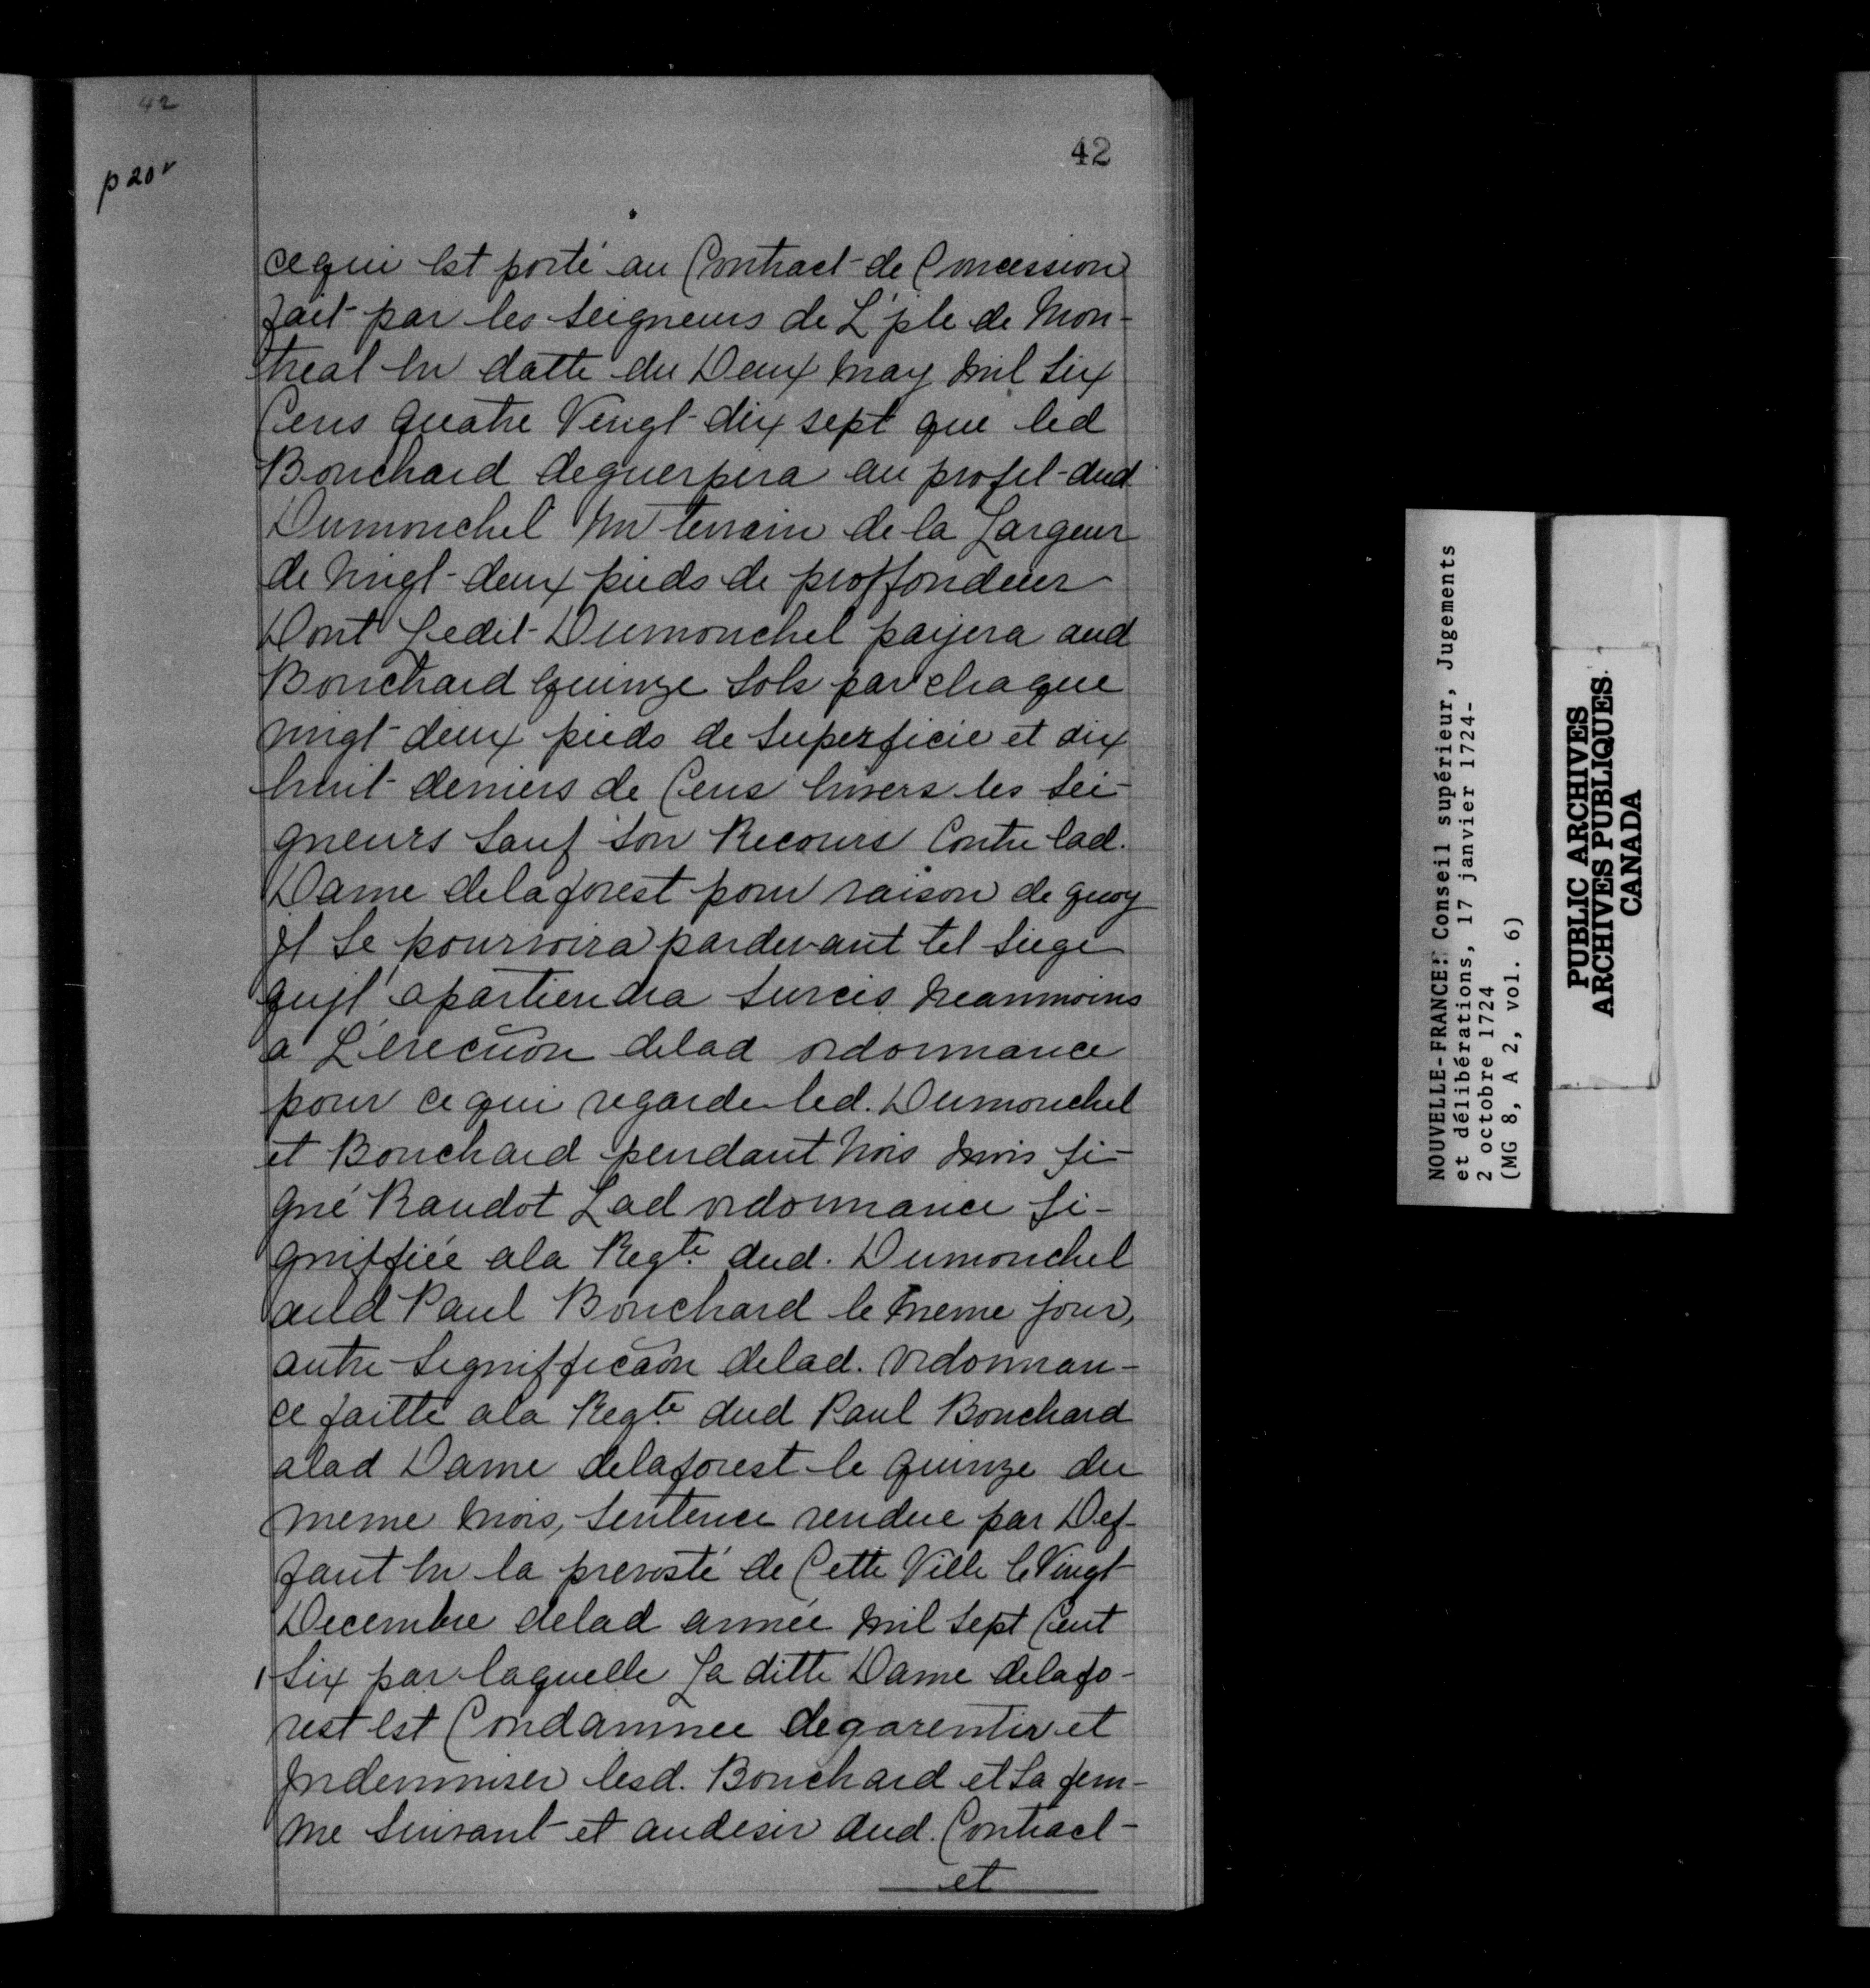 42
p 20v
42
cequi Est porté au Contract de Concession
fait par les Seigneurs de L'jsle de Mon-
treal En datte du Deux may mil Six
Cens quatre Vingt dix sept que led
Bouchard deguerpera au profit dud
Dumouchel Un terrain de la Largeur
de Vingt deux pieds de proffondeur
Dont Ledit Dumouchel payera aud
Bouchard quinze Sols par chaque
vingt deux pieds de Superficie et dix
huit deniers de Cens Envers les Sei-
gneurs Sauf Son Recours Contre lad.
Dame delaforest pour raison de quoy
jl Se pourvoira pardevant tel Siege
qujl apartiendra Surcis Neanmoins
a L'execuõn delad ordonnance
pour cequi regarde led. Dumouchel
et Bouchard pendant trois mois Si-
gné Raudot Lad ordonnance Si-
gniffiée ala Reqte dud. Dumouchel
aud Paul Bouchard le meme jour,
autre Signifficaõn delad. ordonnan-
ce faitte ala Reqte dud Paul Bouchard
alad Dame delaforest le quinze du
meme mois, Sentence rendue par Def-
faut En la prevosté de Cette Ville le Vingt
Decembre delad année mil Sept Cent
Six par laquelle La ditte Dame delafo-
rest Est Condamnée degarentir et
Indemniser lesd. Bouchard et Sa fem-
me Suivant et audesir dud. Contract
et
NOUVELLE-FRANCE: Conseil supérieur, Jugements
et délibérations, 17 janvier 1724-
2 octobre 1724
(MG 8, A 2, vol. 6)
PUBLIC ARCHIVES
ARCHIVES PUBLIQUES
CANADA